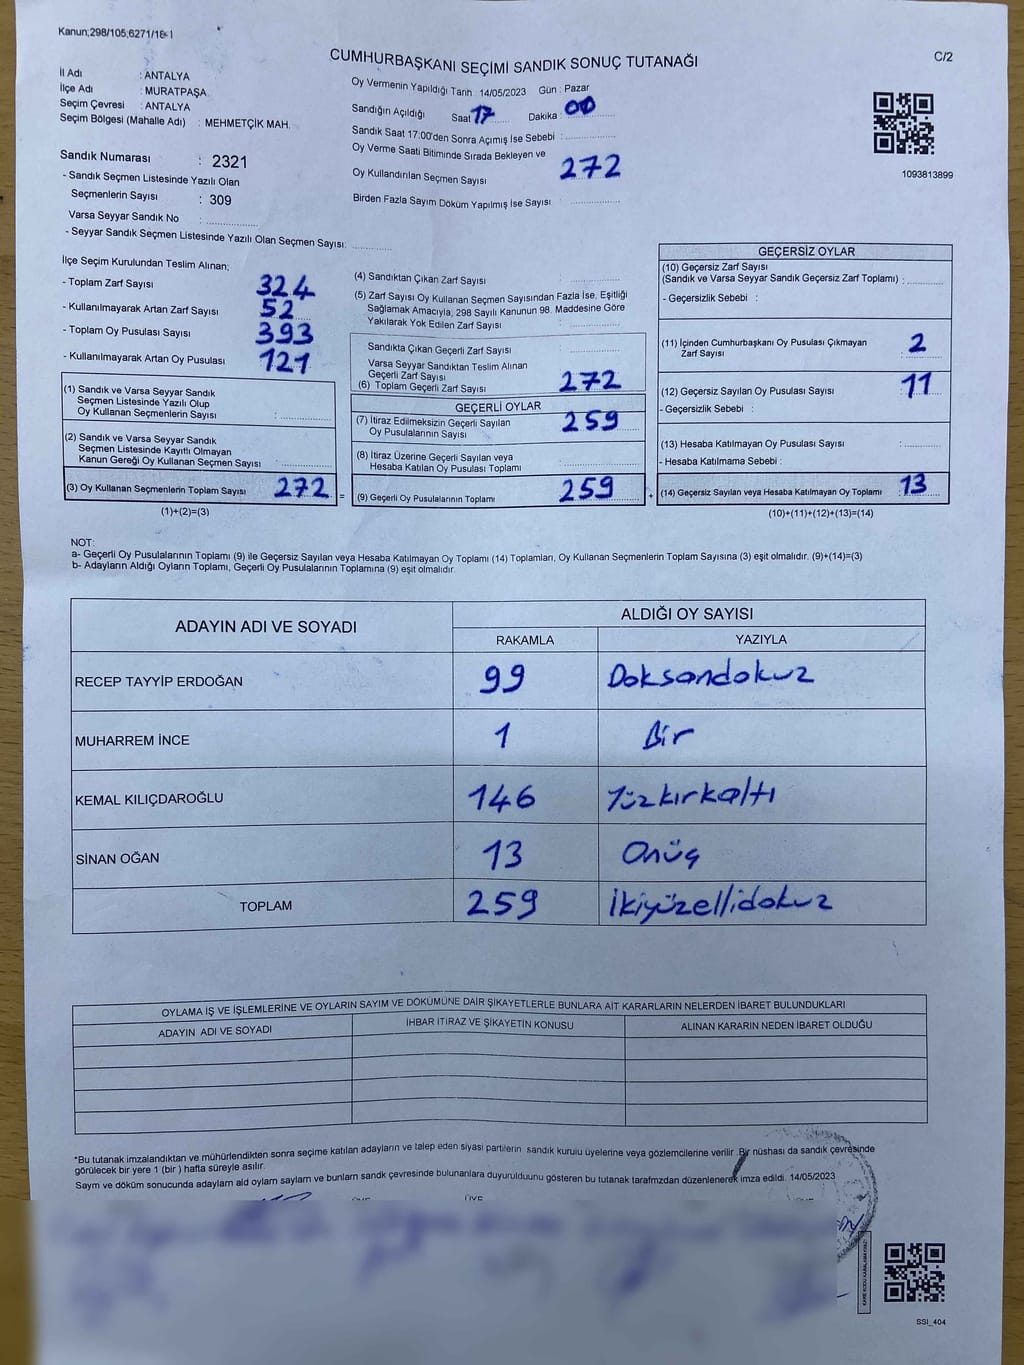 Kanun;298/105;6271/18-I
CUMHURBAŞKANI SEÇİMİ SANDIK SONUÇ TUTANAĞI
C/2
İl Adı : ANTALYA
İlçe Adı : MURATPAŞA
Seçim Çevresi : ANTALYA
Seçim Bölgesi (Mahalle Adı) : MEHMETÇİK MAH.
Oy Vermenin Yapıldığı Tarih 14/05/2023 Gün : Pazar
Sandığın Açıldığı Saat 17 Dakika : 00
Sandık Saat 17:00'den Sonra Açımış İse Sebebi :
Oy Verme Saati Bitiminde Sırada Bekleyen ve
Oy Kullandırılan Seçmen Sayısı 272
Birden Fazla Sayım Döküm Yapılmış İse Sayısı :
1093813899
Sandık Numarası : 2321
- Sandık Seçmen Listesinde Yazılı Olan
Seçmenlerin Sayısı : 309
Varsa Seyyar Sandık No :
- Seyyar Sandık Seçmen Listesinde Yazılı Olan Seçmen Sayısı:
İlçe Seçim Kurulundan Teslim Alınan;
- Toplam Zarf Sayısı 324
- Kullanılmayarak Artan Zarf Sayısı 52
- Toplam Oy Pusulası Sayısı 393
- Kullanılmayarak Artan Oy Pusulası 121
(1) Sandık ve Varsa Seyyar Sandık
Seçmen Listesinde Yazılı Olup
Oy Kullanan Seçmenlerin Sayısı :
(2) Sandık ve Varsa Seyyar Sandık
Seçmen Listesinde Kayıtlı Olmayan
Kanun Gereği Oy Kullanan Seçmen Sayısı :
(3) Oy Kullanan Seçmenlerin Toplam Sayısı 272 =
(1)+(2)=(3)
(4) Sandıktan Çıkan Zarf Sayısı :
(5) Zarf Sayısı Oy Kullanan Seçmen Sayısından Fazla İse, Eşitliği
Sağlamak Amacıyla, 298 Sayılı Kanunun 98. Maddesine Göre
Yakılarak Yok Edilen Zarf Sayısı :
Sandıkta Çıkan Geçerli Zarf Sayısı :
Varsa Seyyar Sandıktan Teslim Alınan
Geçerli Zarf Sayısı
(6) Toplam Geçerli Zarf Sayısı 272
GEÇERLİ OYLAR
(7) İtiraz Edilmeksizin Geçerli Sayılan
Oy Pusulalarının Sayısı 259
(8) İtiraz Üzerine Geçerli Sayılan veya
Hesaba Katılan Oy Pusulası Toplamı :
(9) Geçerli Oy Pusulalarının Toplamı 259 +
GEÇERSİZ OYLAR
(10) Geçersiz Zarf Sayısı
(Sandık ve Varsa Seyyar Sandık Geçersiz Zarf Toplamı) :
- Geçersizlik Sebebi :
(11) İçinden Cumhurbaşkanı Oy Pusulası Çıkmayan
Zarf Sayısı : 2
(12) Geçersiz Sayılan Oy Pusulası Sayısı 11
- Geçersizlik Sebebi :
(13) Hesaba Katılmayan Oy Pusulası Sayısı :
- Hesaba Katılmama Sebebi :
(14) Geçersiz Sayılan veya Hesaba Katılmayan Oy Toplamı : 13
(10)+(11)+(12)+(13)=(14)
NOT:
a- Geçerli Oy Pusulalarının Toplamı (9) ile Geçersiz Sayılan veya Hesaba Katılmayan Oy Toplamı (14) Toplamları, Oy Kullanan Seçmenlerin Toplam Sayısına (3) eşit olmalıdır. (9)+(14)=(3)
b- Adayların Aldığı Oyların Toplamı, Geçerli Oy Pusulalarının Toplamına (9) eşit olmalıdır.
ADAYIN ADI VE SOYADI
ALDIĞI OY SAYISI
RAKAMLA YAZIYLA
RECEP TAYYİP ERDOĞAN 99 Doksandokuz
MUHARREM İNCE 1 Bir
KEMAL KILIÇDAROĞLU 146 Yüzkırkaltı
SİNAN OĞAN 13 Onüç
TOPLAM 259 İkiyüzellidokuz
OYLAMA İŞ VE İŞLEMLERİNE VE OYLARIN SAYIM VE DÖKÜMÜNE DAİR ŞİKAYETLERLE BUNLARA AİT KARARLARIN NELERDEN İBARET BULUNDUKLARI
ADAYIN ADI VE SOYADI İHBAR İTİRAZ VE ŞİKAYETİN KONUSU ALINAN KARARIN NEDEN İBARET OLDUĞU
*Bu tutanak imzalandıktan ve mühürlendikten sonra seçime katılan adayların ve talep eden siyasi partilerin sandık kurulu üyelerine veya gözlemcilerine verilir. Bir nüshası da sandık çevresinde
görülecek bir yere 1 (bir ) hafta süreyle asılır.
Sayım ve döküm sonucunda adaylam ald oylam saylam ve bunlam sandk çevresinde bulunanlara duyurulduunu gösteren bu tutanak tarafmzdan düzenlenerek imza edildi. 14/05/2023
ÜYE
SSI_404